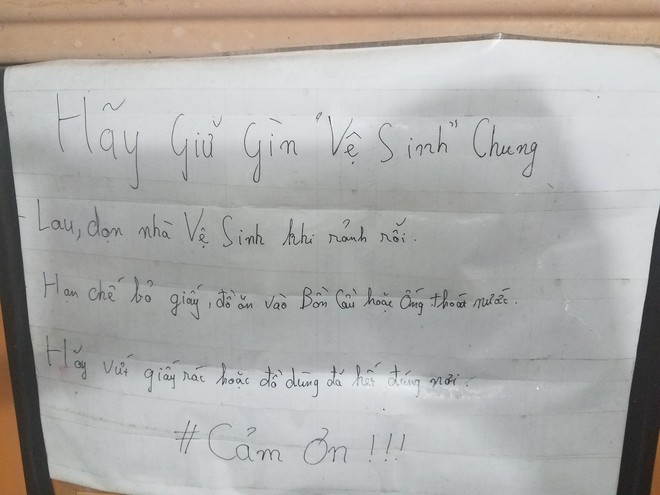 Hãy Giữ Gìn "Vệ Sinh" Chung
- Lau, dọn nhà Vệ Sinh khi rảnh rỗi.
- Hạn chế bỏ giấy, đồ ăn vào Bồn Cầu hoặc Ống thoát nước.
- Hãy vứt giấy rác hoặc đồ dùng đã hết đúng nơi.
# Cảm Ơn !!!